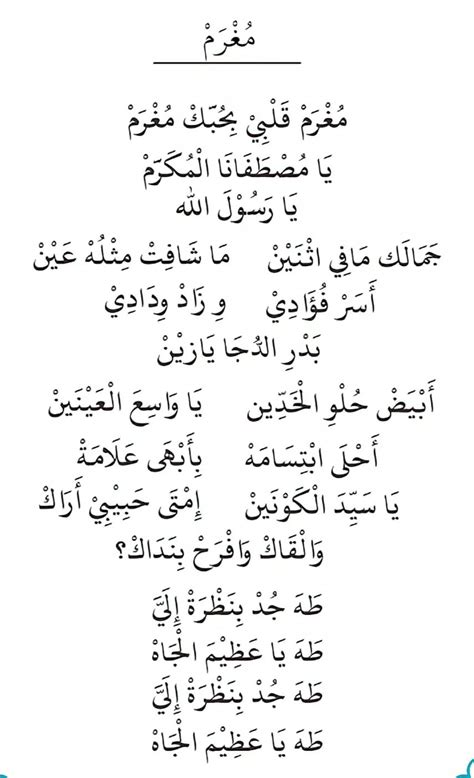 مُغْرَمْ
مُغْرَمْ قَلْبِيْ بِحُبّكْ مُغْرَمْ
يَا مُصْطَفَانَا الْمُكَرّمْ
يَا رَسُوْلَ الله
جَمَالَك مَافِي اثْنَيْنْ مَا شَافِتْ مِثْلُهْ عَيْنْ
أَسَرْ فُؤَادِيْ وِ زَادْ وِدَادِيْ
بَدْرِ الدُجَا يَازيْنْ
أَبْيَضْ حُلْوِ الْخَدِّين يَا وَاسِعَ الْعَيْنَيْنْ
أَحْلَى ابْتِسَامَهْ بِأَبْهَى عَلَامَةْ
يَا سَيِّدَ الْكَوْنَيْنْ إِمْتَى حَبِيْبِيْ أَرَاكْ
وَالْقَاكْ وَافْرَحْ بِنَدَاكْ؟
طَهَ جُدْ بِنَظْرَةْ إِلَيَّ
طَهَ يَا عَظِيْمَ الْجَاهْ
طَهَ جُدْ بِنَظْرَةْ إِلَيَّ
طَهَ يَا عَظِيْمَ الْجَاهْ